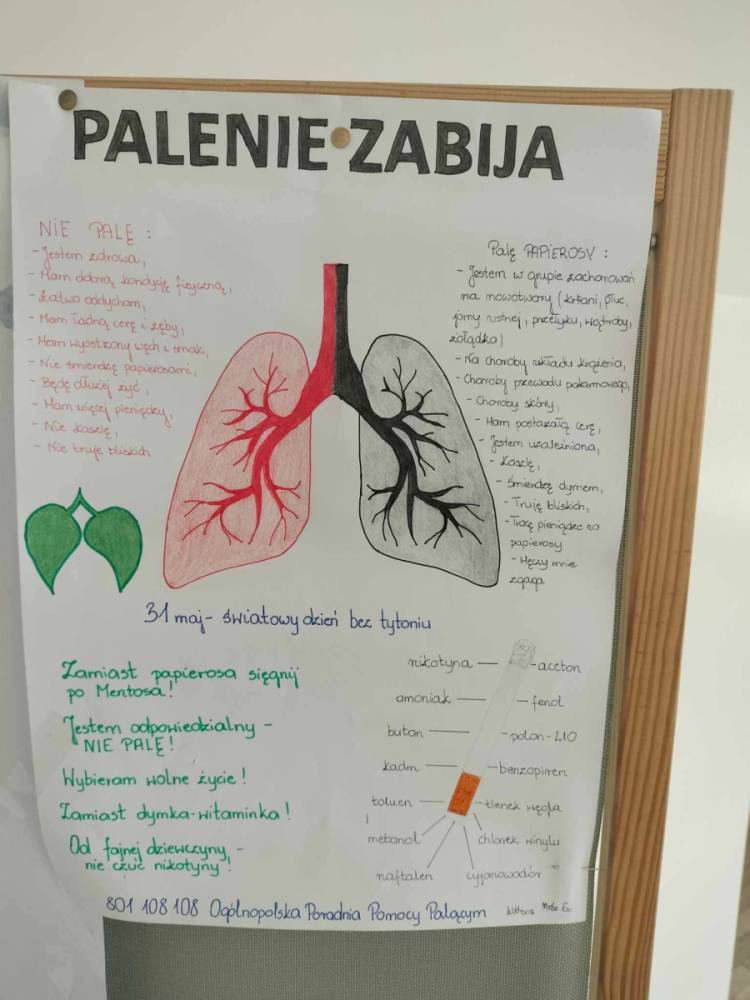 PALENIE ZABIJA
NIE PALĘ :
- Jestem zdrowa,
- Mam dobrą kondycję fizyczną,
- Łatwo oddycham,
- Mam ładną cerę i zęby,
- Mam wyostrzony węch i smak,
- Nie śmierdzę papierosami,
- Będę dłużej żyć,
- Mam więcej pieniędzy,
- Nie kaszlę,
- Nie truję bliskich
Palę PAPIEROSY :
- Jestem w grupie zachorowań
na nowotwory (krtani, płuc,
jamy ustnej, przełyku, wątroby,
żołądka)
- Na choroby układu krążenia,
- Choroby przewodu pokarmowego,
- Choroby skóry,
- Mam postarzałą cerę,
- Jestem uzależniona,
- Kaszlę,
- Śmierdzę dymem,
- Truję bliskich,
- Tracę pieniądze na
papierosy
- Męczy mnie
zgaga
31 maj - światowy dzień bez tytoniu
Zamiast papierosa sięgnij
po Mentosa!
Jestem odpowiedzialny -
NIE PALĘ!
Wybieram wolne życie!
Zamiast dymka-witaminka!
Od fajnej dziewczyny -
nie czuć nikotyny!
nikotyna — — aceton
amoniak — — fenol
butan — — polon-210
kadm — — benzopiren
toluen — — tlenek węgla
metanol chlorek winylu
naftalen cyjanowodór
801 108 108 Ogólnopolska Poradnia Pomocy Palącym